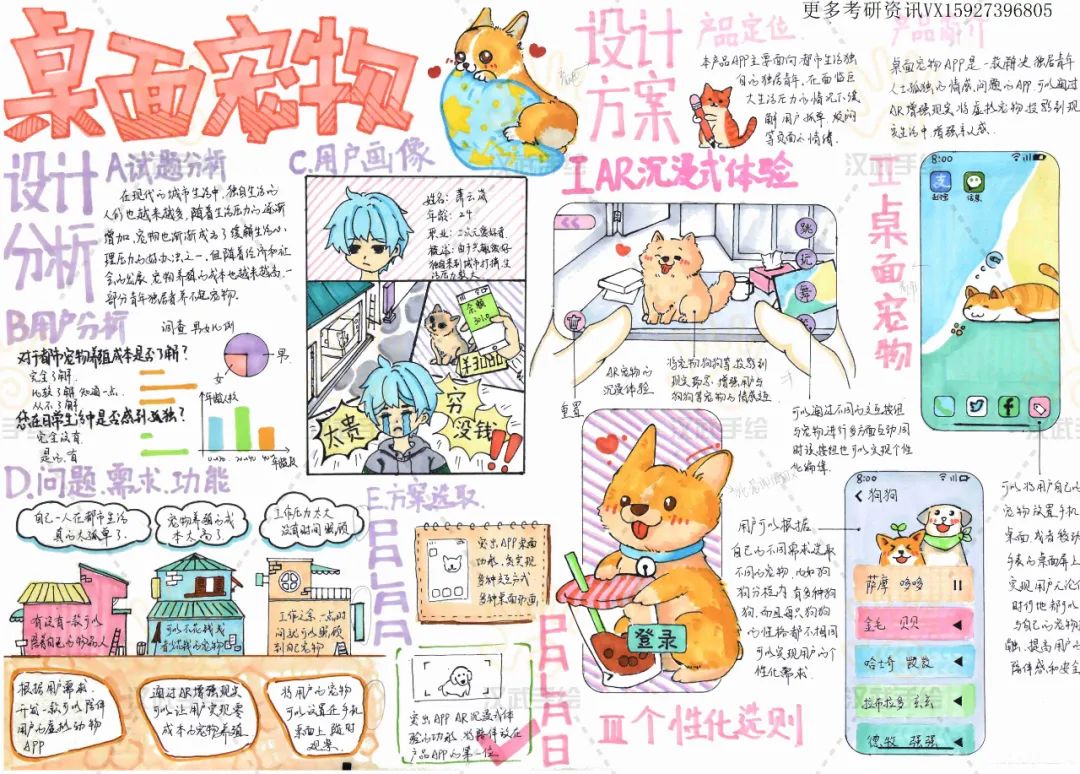 更多考研资讯VX15927396805
桌面宠物
设计分析
A试题分析
在现代的城市生活中,独自生活的
人们也越来越多,随着生活压力的逐渐
增加,宠物也渐渐成为了缓解生活心
理压力的好办法之一,但随着经济和社
会的发展,宠物养殖的成本也越来越高,一
部分青年独居者养不起宠物.
B用户分析
调查男女比例
男
女
对于都市宠物养殖成本是否了解?
完全了解
比较了解 知道一点
从不了解
您在日常生活中是否感到孤独?
完全没有
是的,有
年龄人数
年龄段
C.用户画像
姓名:萧云岚
年龄:24
职业:二次元爱好者
独自来到城市打拼,生
活压力较大
余额
¥3000
太贵
穷
没钱!!
D.问题.需求.功能
自己一人在都市生活
真的太孤单了.
宠物养殖的成
本太高了
工作压力太大
没有时间照顾
有没有一款可以
陪着自己的宠物的人
可以不花钱或
者少花钱的宠物
工作之余,一点时
间就可以照顾
到自己宠物
根据用户需求,
开发一款可以陪伴
用户的虚拟动物
APP
通过AR增强现实
可以让用户实现零
成本的宠物养殖
将用户的宠物
可以设置在手机
桌面上,随时
观察.
E.方案选取
PALAA
突出APP桌面
功能,能实现
多种交互方式
多种桌面动画,
PALAB
突出APP AR沉浸式体
验的功能,将陪伴放在
产品APP的第一位
设计方案
产品定位
本产品APP主要面向都市生活独
自的独居青年,在面临巨
大生活压力的情况下缓
解用户孤单,疲闷
等负面的情绪.
产品简介
桌面宠物APP是一款解决独居青年
人士孤独的情感问题的APP,可以通过
AR增强现实,将虚拟宠物投影到现
实生活中,增强亲人感.
I AR沉浸式体验
跳
玩
舞
重置
AR宠物的
沉浸体验
将宠物狗狗等投影到
现实场景,增强用户与
狗狗等宠物的情感链
可以通过不同的交互按钮
与宠物进行多方面互动同
时该按钮也可以实现个性
化编集.
II桌面宠物
8:00
支
支付宝
信息
可以将用户自己的
宠物设置手机
桌面,或者移动
手表的桌面屏上
实现用户无论何
时何地都可以
与自己的宠物
触,提高用户的
陪伴感和安全
登录
用户可以根据
自己的不同需求选取
不同的宠物,比如狗
狗分栏内,有多种狗
狗,而且每只狗狗
的性格都不相同
可以实现用户的个
性化需求.
8:00
狗狗
萨摩 哆哆
金毛 贝贝
哈士奇 毁毁
拉布拉多 玄玄
德牧 强强
III个性化选则
汉武手绘